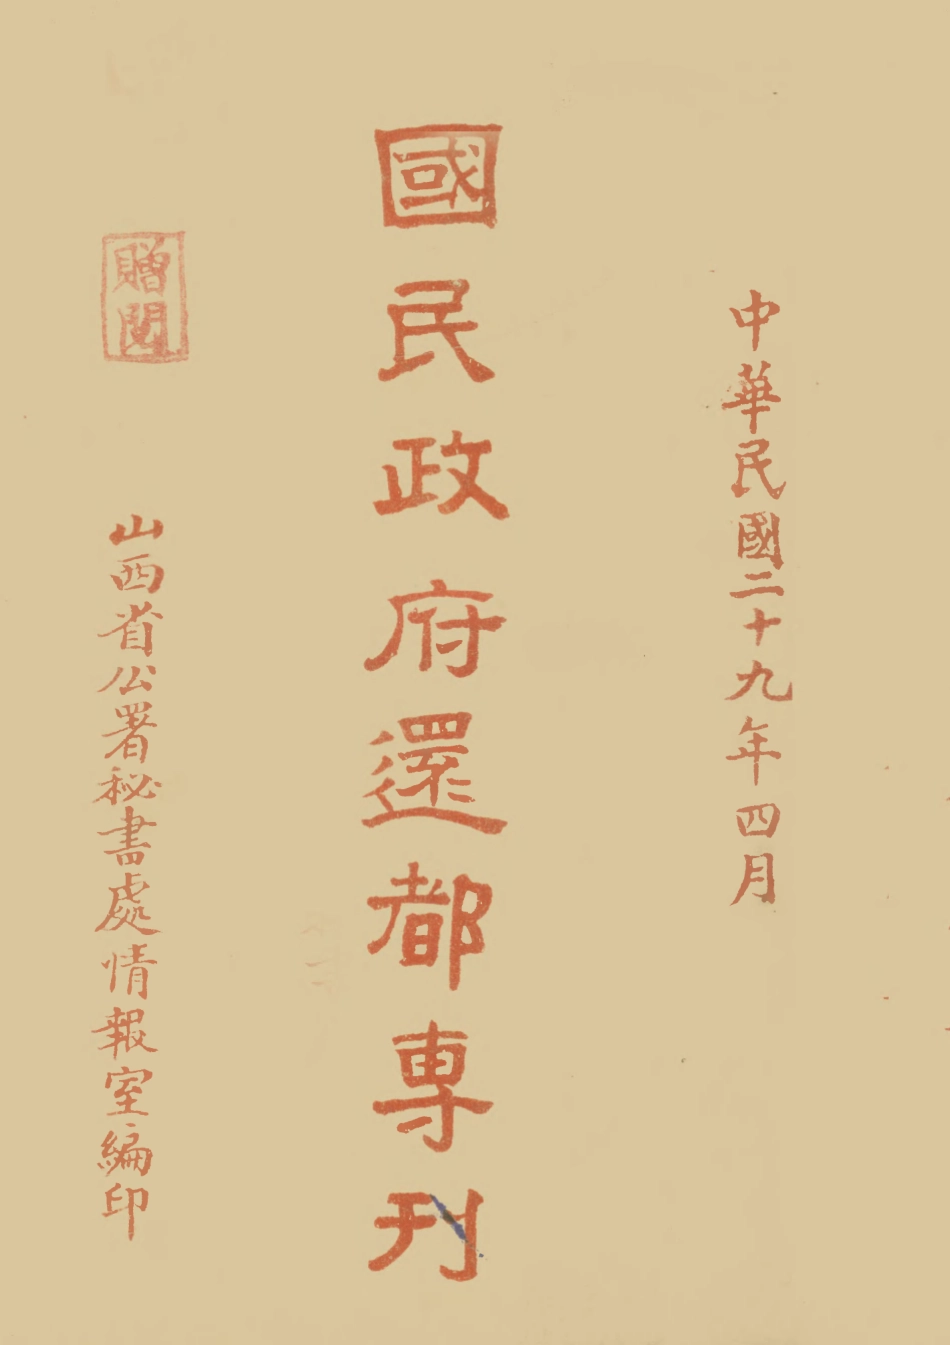 中華民國二十九年四月
國民政府還都專刊
贈閱
山西省公署秘書處情報室編印